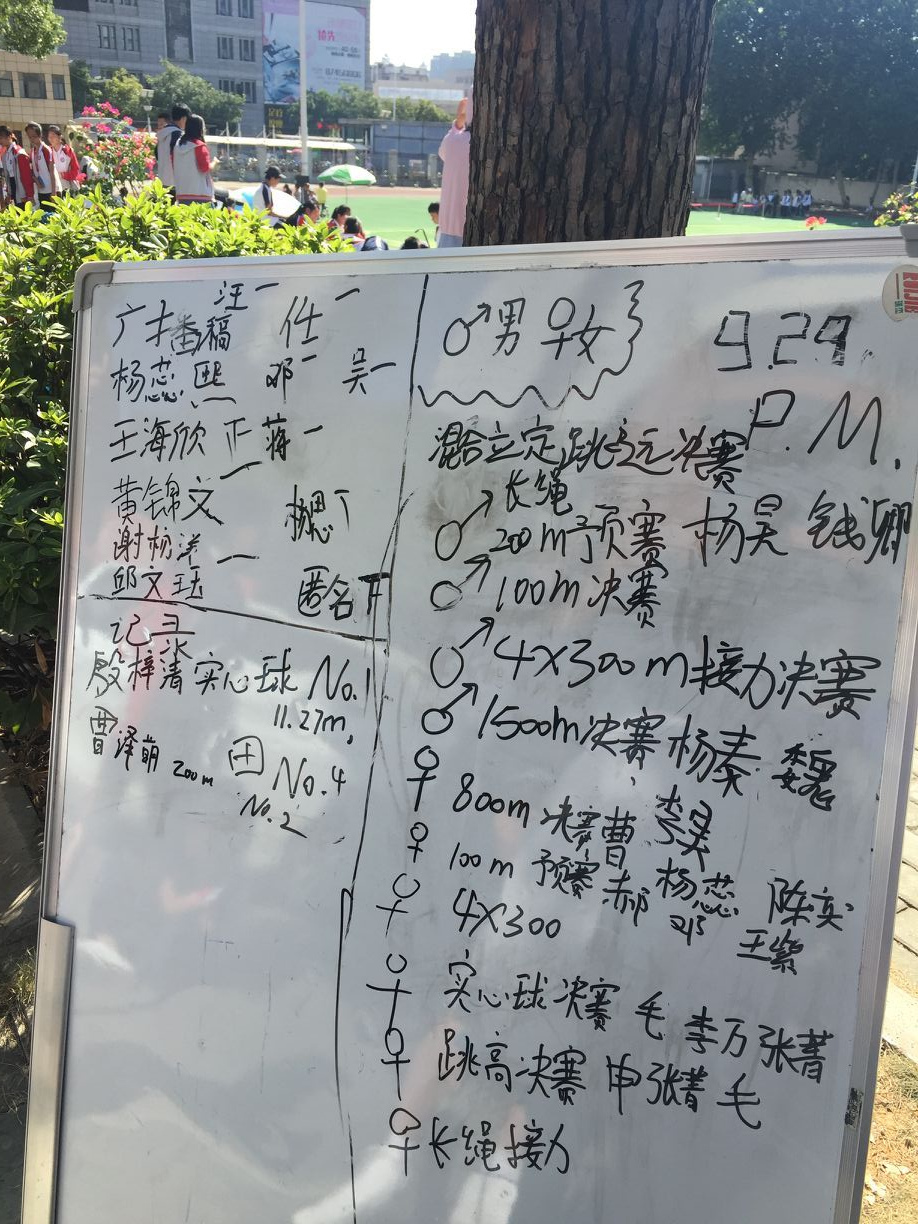 汪一
广播稿 任一
杨蕊熙 邓一 吴一
王海欣 正 蒋一
黄锦文一
谢杨洋一
邱文珏 匿名下
记录
殷梓清 实心球 No.1
11.27m,
曹泽萌 200m 田 No.4
No.2
♂男 ♀女
9.29.
P.M.
混合立定跳远决赛
长绳
♂200m预赛 杨昊 钱
♂100m决赛
♂4×300m接力决赛
♂1500m决赛 杨秦 魏
♀800m决赛 曹 李昊
♀100m预赛 郝 杨蕊 邓 陈奕 王紫
♀4×300
♀实心球决赛 毛 李万 张菁
♀跳高决赛 申 张菁 毛
♀长绳接力